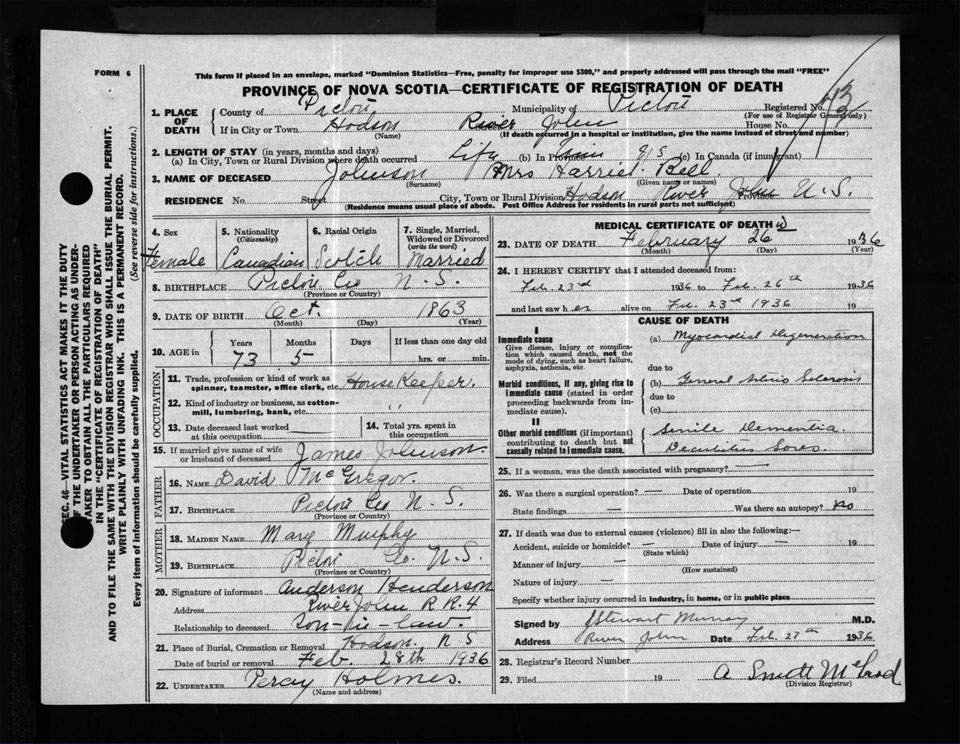 FORM 6
This form if placed in an envelope, marked "Dominion Statistics—Free, penalty for improper use $300," and properly addressed will pass through the mail "FREE"
PROVINCE OF NOVA SCOTIA—CERTIFICATE OF REGISTRATION OF DEATH
1. PLACE OF DEATH County of Pictou Municipality of Pictou Registered No.
(For use of Registrar General only)
If in City or Town Hodson River John House No.
(Name) (If death occurred in a hospital or institution, give the name instead of street and number)
2. LENGTH OF STAY (in years, months and days)
(a) In City, Town or Rural Division where death occurred Life (b) In Province (c) In Canada (if immigrant)
3. NAME OF DECEASED Johnson Mrs Harriet Bell
(Surname) (Given name or names)
RESIDENCE No. Street City, Town or Rural Division Hodson River John Province N.S.
(Residence means usual place of abode. Post Office Address for residents in rural parts not sufficient)
4. Sex 5. Nationality (Citizenship) 6. Racial Origin 7. Single, Married, Widowed or Divorced (write the word)
Female Canadian Scotch Married
8. BIRTHPLACE Pictou Co N.S.
(Province or Country)
9. DATE OF BIRTH Oct. 1863
(Month) (Day) (Year)
10. AGE in Years Months Days If less than one day old
73 5 hrs. or min.
OCCUPATION
11. Trade, profession or kind of work as spinner, teamster, office clerk, etc. House Keeper.
12. Kind of industry or business, as cotton-mill, lumbering, bank, etc. "
13. Date deceased last worked at this occupation
14. Total yrs. spent in this occupation
15. If married give name of wife or husband of deceased James Johnson
FATHER
16. NAME David McGregor.
17. BIRTHPLACE Pictou Co N.S.
(Province or Country)
MOTHER
18. MAIDEN NAME Mary Murphy
19. BIRTHPLACE Pictou Co. N.S.
(Province or Country)
20. Signature of informant Anderson Henderson
Address River John R R. 4
Relationship to deceased Son-in-law.
21. Place of Burial, Cremation or Removal Hodson. N S
Date of burial or removal Feb. 28th 1936
22. UNDERTAKER Percy Holmes.
(Name and address)
MEDICAL CERTIFICATE OF DEATH
23. DATE OF DEATH February 26 1936
(Month) (Day) (Year)
24. I HEREBY CERTIFY that I attended deceased from:
Feb. 23rd 1936 to Feb. 26th 1936
and last saw her alive on Feb. 23rd 1936 19
CAUSE OF DEATH
I
Immediate cause
Give disease, injury or complication which caused death, not the mode of dying, such as heart failure, asphyxia, asthenia, etc.
(a) Myocardial Degeneration
due to
Morbid conditions, if any, giving rise to immediate cause (stated in order proceeding backwards from immediate cause).
(b) General Arterio Sclerosis
due to
(c)
II
Other morbid conditions (if important) contributing to death but not causally related to immediate cause.
Senile Dementia.
Decubitus Sores.
25. If a woman, was the death associated with pregnancy? —
26. Was there a surgical operation? — Date of operation 19
State findings — Was there an autopsy? No
27. If death was due to external causes (violence) fill in also the following:—
Accident, suicide or homicide? — Date of injury — 19
(State which)
Manner of injury —
(How sustained)
Nature of injury —
Specify whether injury occurred in industry, in home, or in public place
Signed by J Stewart Murray M.D.
Address River John Date Feb. 27th 1936
28. Registrar's Record Number
29. Filed 19
(Division Registrar)
SEC. 46—VITAL STATISTICS ACT MAKES IT THE DUTY
OF THE UNDERTAKER OR PERSON ACTING AS UNDER-
TAKER TO OBTAIN ALL THE PARTICULARS REQUIRED
IN THE "CERTIFICATE OF REGISTRATION OF DEATH"
AND TO FILE THE SAME WITH THE DIVISION REGISTRAR WHO SHALL ISSUE THE BURIAL PERMIT.
WRITE PLAINLY WITH UNFADING INK. THIS IS A PERMANENT RECORD.
Every item of information should be carefully supplied. (See reverse side for instructions.)